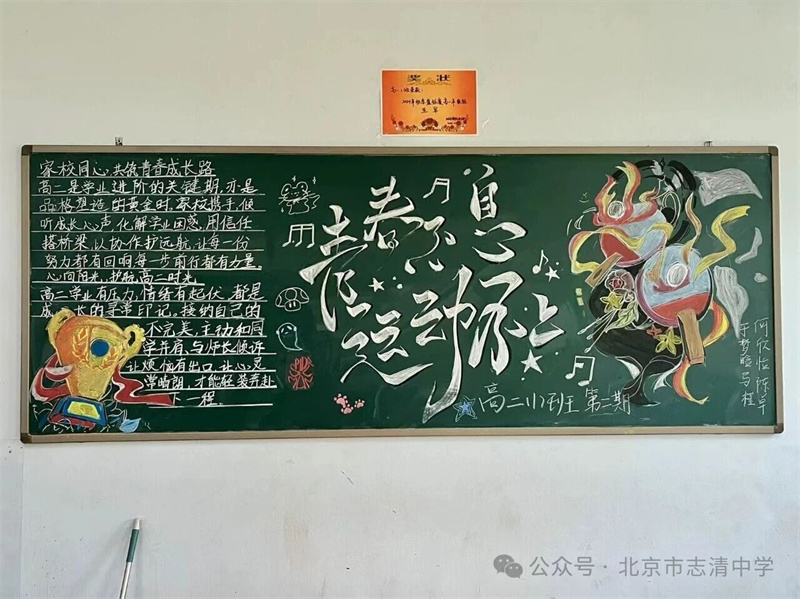 奖 状
家校同心,共筑青春成长路
高二是学业进阶的关键期,亦是
品格塑造的黄金时,家校携手,倾
听成长心声,化解学业困惑,用信任
搭桥梁,以协作护远航,让每一份
努力都有回响,每一步前行都有力量。
心向阳光,护航高二时光
高二学业有压力,情绪有起伏,都是
成长的寻常印记。接纳自己的
不完美,主动和同
学并肩,与师长倾诉
让烦恼有出口,让心灵
常晴朗,才能轻装奔赴
下一程。
青春不息
运动不止
高二(1)班 第二期
何欣怡 陈卓
公众号·北京市志清中学